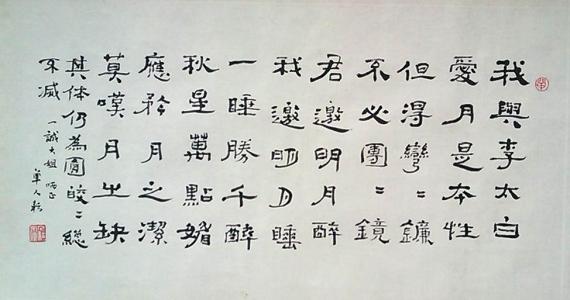 我與李太白
愛月是本性
但得彎〻鐮
不必團〻鏡
君邀明月醉
我邀明月睡
一睡勝千醉
秋星萬點媚
應矜月之潔
莫嘆月之缺
其体仍為圓皎〻總
不减
一誠大姐 正
單人耘